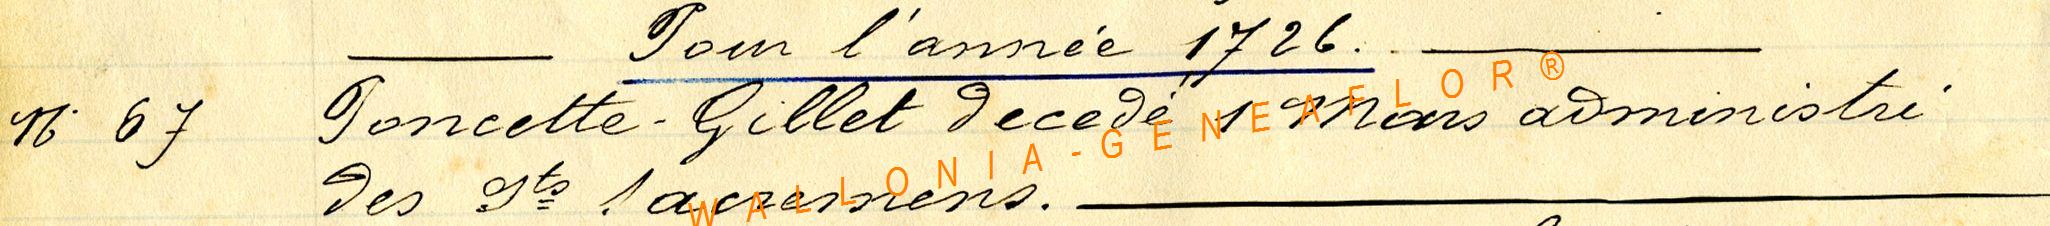 Pour l'année 1726.
N° 67 Poncette-Gillet decedé 1 Mars administré
des Sts sacremens.
WALLONIA-GENEAFLOR®